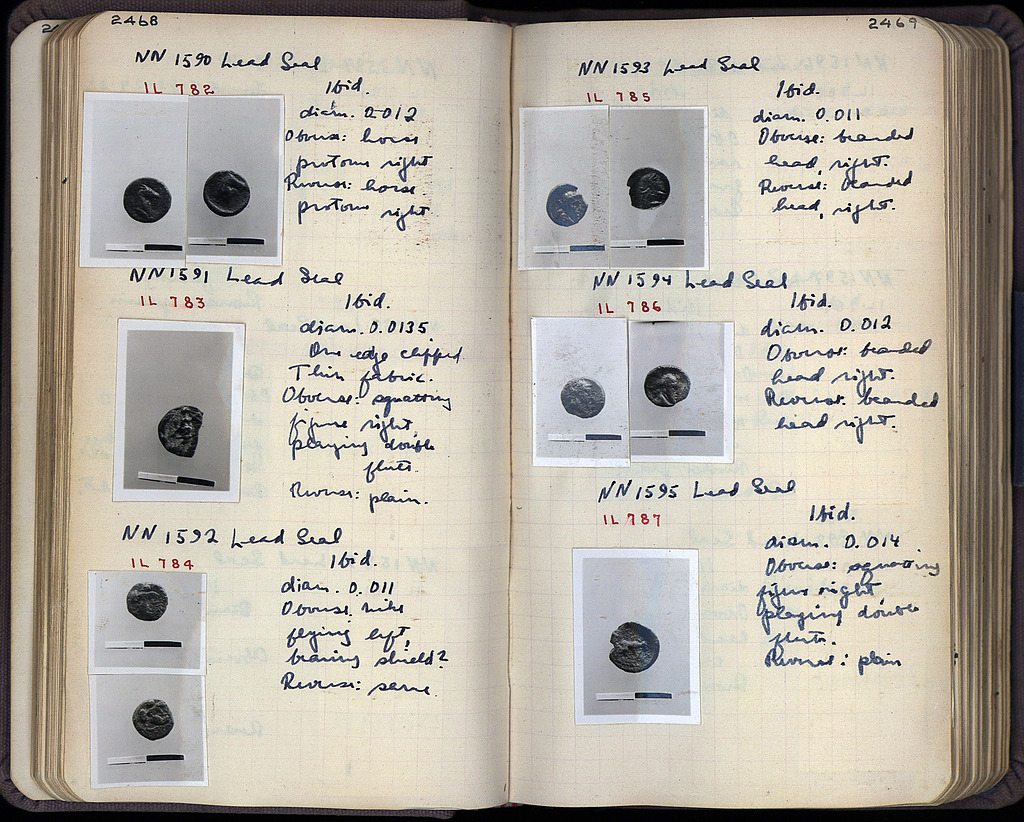 2468
NN 1590 Lead Seal
IL 782
Ibid.
diam. 0.012
Obverse: horse
protome right
Reverse: horse
protome right
NN 1591 Lead Seal
IL 783
Ibid.
diam. 0.0135
One edge clipped.
Thin fabric.
Obverse: squatting
figure right,
playing double
flute.
Reverse: plain.
NN 1592 Lead Seal
IL 784
Ibid.
diam. 0.011
Obverse: nike
flying left,
bearing shield?
Reverse: same.
2469
NN 1593 Lead Seal
IL 785
Ibid.
diam. 0.011
Obverse: bearded
head, right.
Reverse: bearded
head, right.
NN 1594 Lead Seal
IL 786
Ibid.
diam. 0.012
Obverse: bearded
head right.
Reverse: bearded
head right.
NN 1595 Lead Seal
IL 787
Ibid.
diam. 0.014
Obverse: squatting
figure right,
playing double
flute.
Reverse: plain